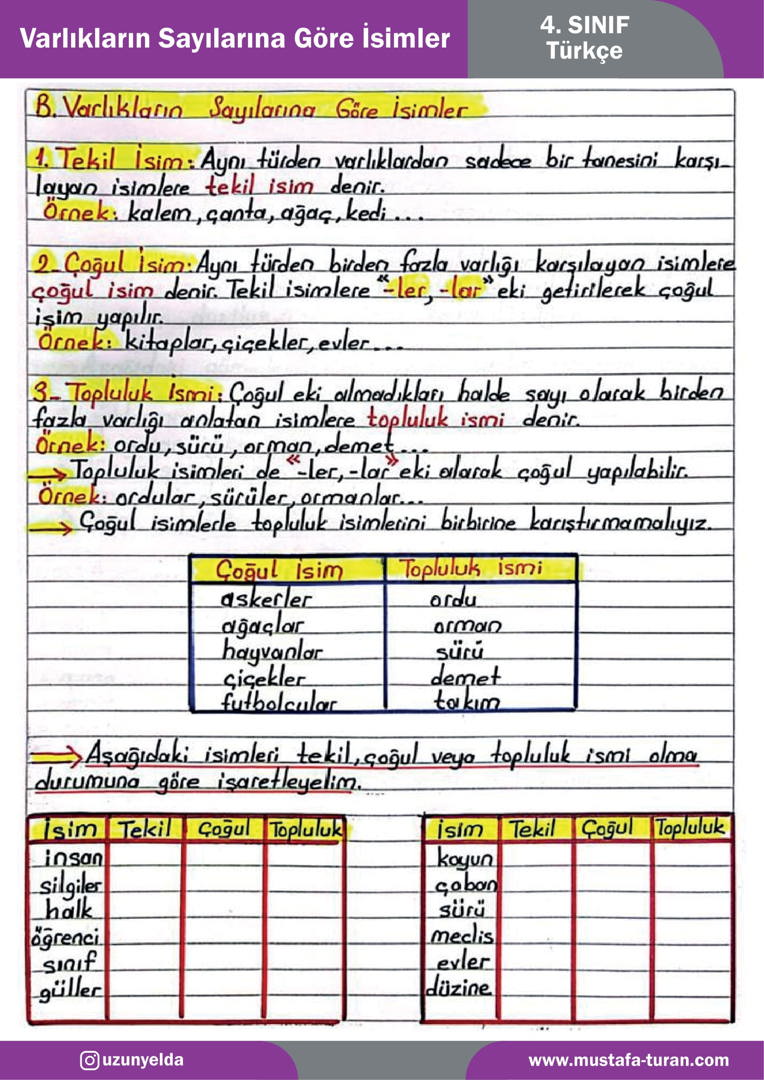 Varlıkların Sayılarına Göre İsimler
4. SINIF
Türkçe
B. Varlıkların Sayılarına Göre İsimler
1. Tekil İsim: Aynı türden varlıklardan sadece bir tanesini karşı-
layan isimlere tekil isim denir.
Örnek: kalem, çanta, ağaç, kedi ...
2- Çoğul İsim: Aynı türden birden fazla varlığı karşılayan isimlere
çoğul isim denir. Tekil isimlere "-ler, -lar" eki getirilerek çoğul
isim yapılır.
Örnek: kitaplar, çiçekler, evler ...
3- Topluluk İsmi: Çoğul eki almadıkları halde sayı olarak birden
fazla varlığı anlatan isimlere topluluk ismi denir.
Örnek: ordu, sürü, orman, demet ...
→ Topluluk isimleri de "-ler, -lar" eki alarak çoğul yapılabilir.
Örnek: ordular, sürüler, ormanlar...
→ Çoğul isimlerle topluluk isimlerini birbirine karıştırmamalıyız.
Çoğul İsim Topluluk ismi
askerler ordu
ağaçlar orman
hayvanlar sürü
çiçekler demet
futbolcular takım
→ Aşağıdaki isimleri tekil, çoğul veya topluluk ismi olma
durumuna göre işaretleyelim.
İsim Tekil Çoğul Topluluk
insan
silgiler
halk
öğrenci
sınıf
güller
İsim Tekil Çoğul Topluluk
koyun
çoban
sürü
meclis
evler
düzine
uzunyelda
www.mustafa-turan.com